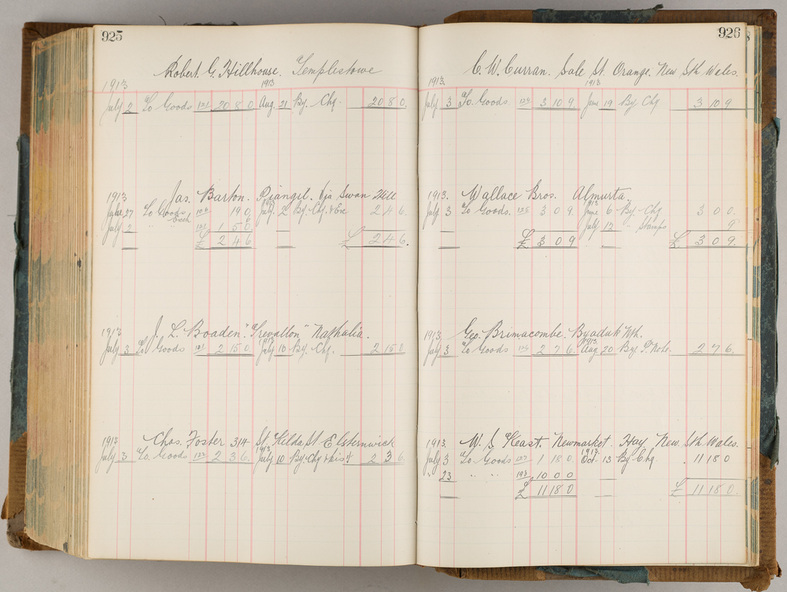 925
Robert G. Hillhouse. Templestowe
1913 1913
July 2 To Goods 20 8 0 Aug 21 By Chq 20 8 0
1913 Jas. Barton. Piangil. Via Swan Hill
June 27 To Goods 19 0 July 2 By Chq & Exc 2 4 6
July 2 1 5 6
£ 2 4 6 £ 2 4 6
1913 J. L. Boaden. "Trevallon" Nathalia.
July 3 To Goods 2 15 0 July 10 By Chq. 2 15 0
1913 Chas. Foster 314 St. Kilda St. Elsternwick
July 3 To Goods 2 3 6 July 10 By Chq & Dist 2 3 6
926
C. W. Curran. Sale St. Orange. New Sth. Wales.
1913 1913
July 3 To Goods 3 10 9 June 19 By Chq 3 10 9
1913. Wallace Bros. Almurta.
July 3 To Goods. 3 0 9 June 6 By Chq 3 0 0
July 12 Stamps 9
£ 3 0 9 £ 3 0 9
1913 Geo. Brimacombe. Byaduk Nth.
July 3 To Goods 2 7 6 Aug 20 By P. Note 2 7 6
1913 W. S. Heast. Newmarket Hay New Sth. Wales.
July 3 To Goods 1 18 0 Oct 13 By Chq 11 18 0
23 " " 10 0 0
£ 11 18 0 £ 11 18 0